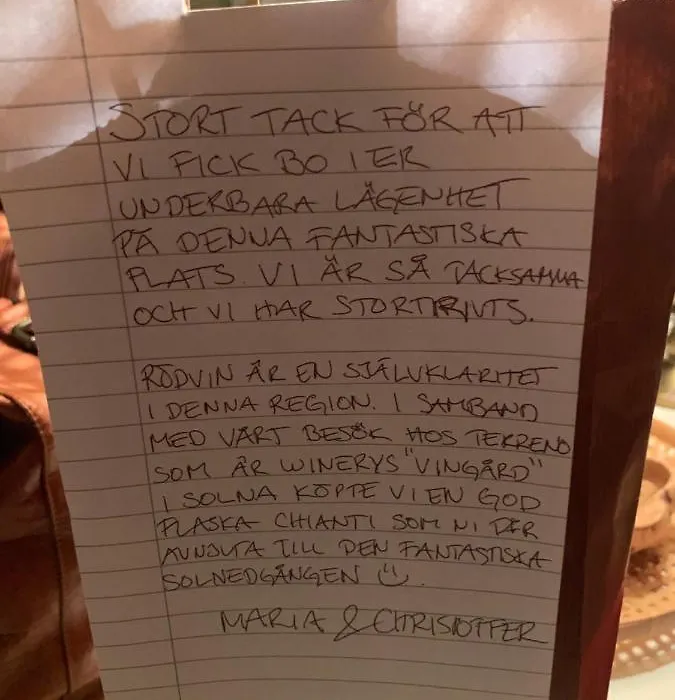 STORT TACK FÖR ATT
VI FICK BO I ER
UNDERBARA LÄGENHET
PÅ DENNA FANTASTISKA
PLATS. VI ÄR SÅ TACKSAMMA
OCH VI HAR STORTRIVTS.
RÖDVIN ÄR EN SJÄLVKLARITET
I DENNA REGION. I SAMBAND
MED VÅRT BESÖK HOS
SOM ÄR WINERYS "VINGÅRD"
I SOLNA KÖPTE VI EN GOD
FLASKA CHIANTI SOM NI FÅR
AVNJUTA TILL DEN FANTASTISKA
SOLNEDGÅNGEN
MARIA & CHRISTOFFER